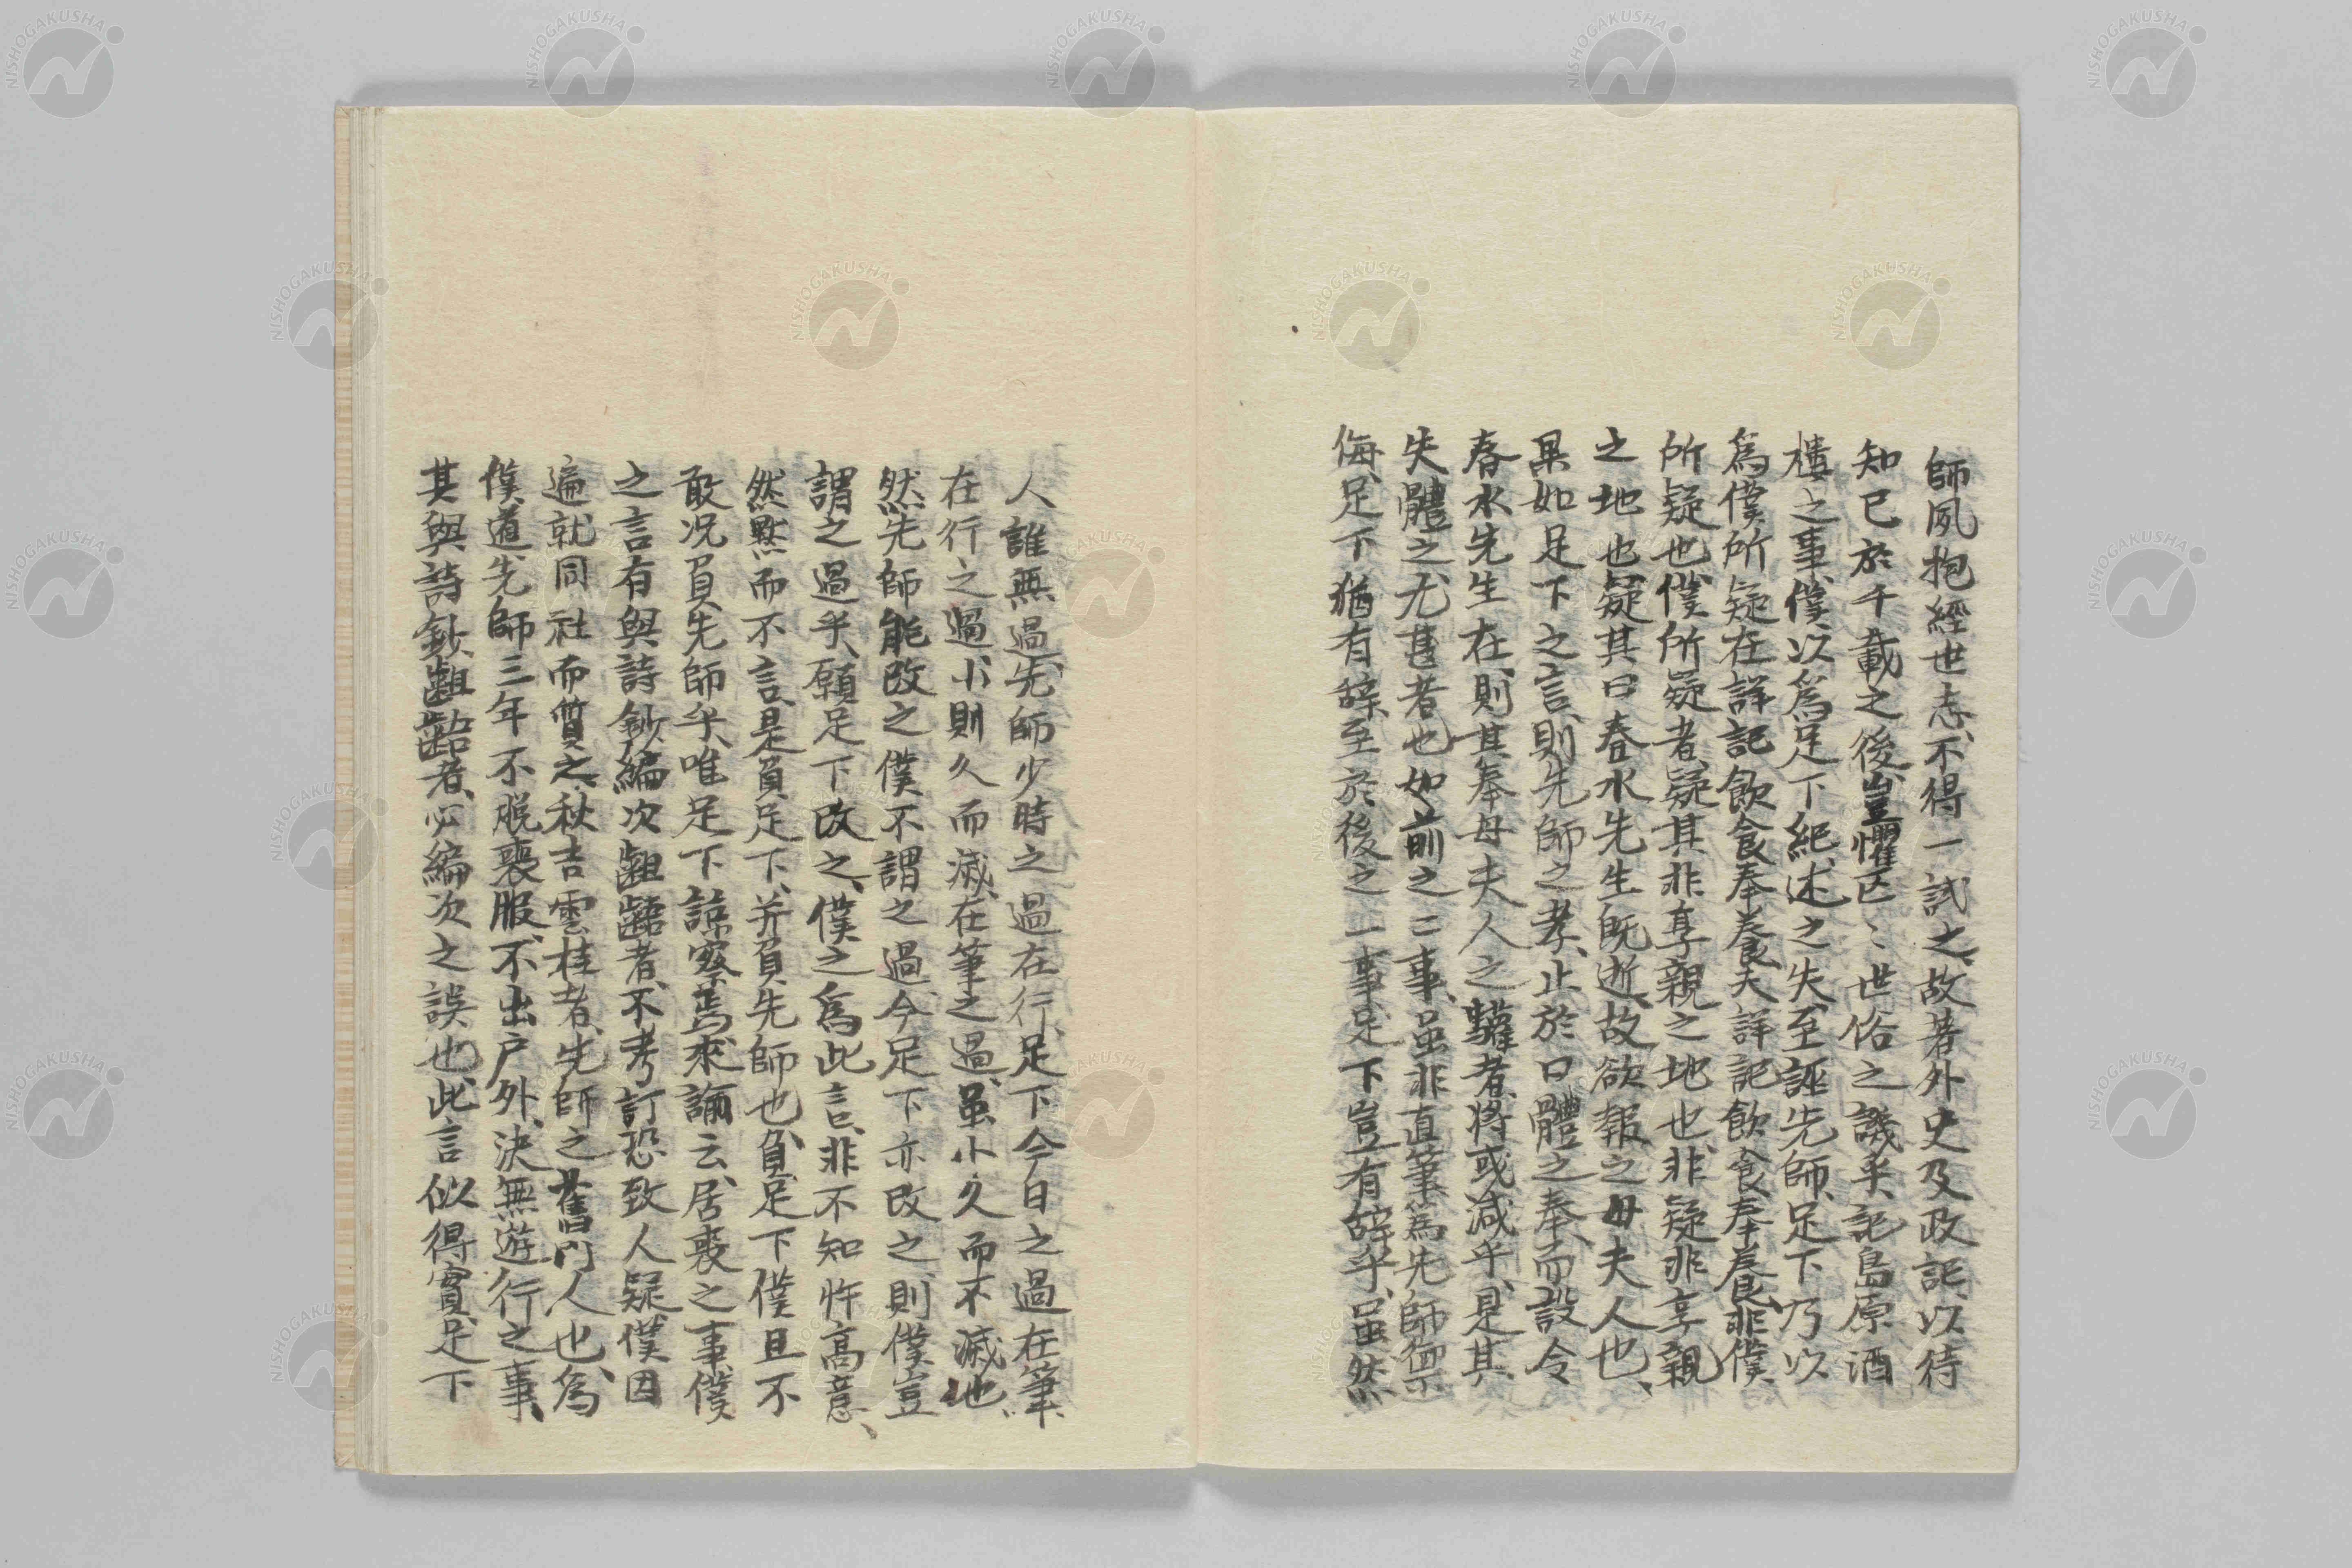 師夙抱經世志、不得一試之、故著外史及政記、以待
知已於千載之後、豈懼区〻世俗之譏乎、記島原酒
樓之事、僕以爲足下紀述之失、至誣先師、足下乃以
爲僕所疑在詳記飲食奉養、夫詳記飲食奉養、非僕
所疑也、僕所疑者、疑其非享親之地也、非疑非享親
之地也、疑其曰春水先生既逝、故欲報之母夫人也、
果如足下之言、則先師之孝、止於口體之奉、而設令
春水先生在、則其奉母夫人之驩者、將或減乎、是其
失體之尤甚者也、如前之二事、虽非直筆、爲先師禦
侮、足下猶有辞、至於後之一事、足下豈有辞乎、虽然
人誰無過、先師少時之過在行、足下今日之過在筆、
在行之過小則久而滅、在筆之過、虽小久而不滅也、
然先師能改之、僕不謂之過、今足下亦改之、則僕豈
謂之過乎、願足下改之、僕之爲此言、非不知忤高意、
然黙而不言、是負足下、并負先師也、負足下僕且不
敢、况負先師乎、唯足下諒察焉、來諭云、居喪之事、僕
之言有與詩鈔編次齟齬者、不考訂恐致人疑、僕因
遍就同社而質之、秋吉雲桂者、先師之舊門人也、爲
僕道、先師三年不脱喪服、不出戸外、決無遊行之事、
其與詩鈔齟齬者、必編次之誤也、此言似得實、足下
NISHOGAKUSHA